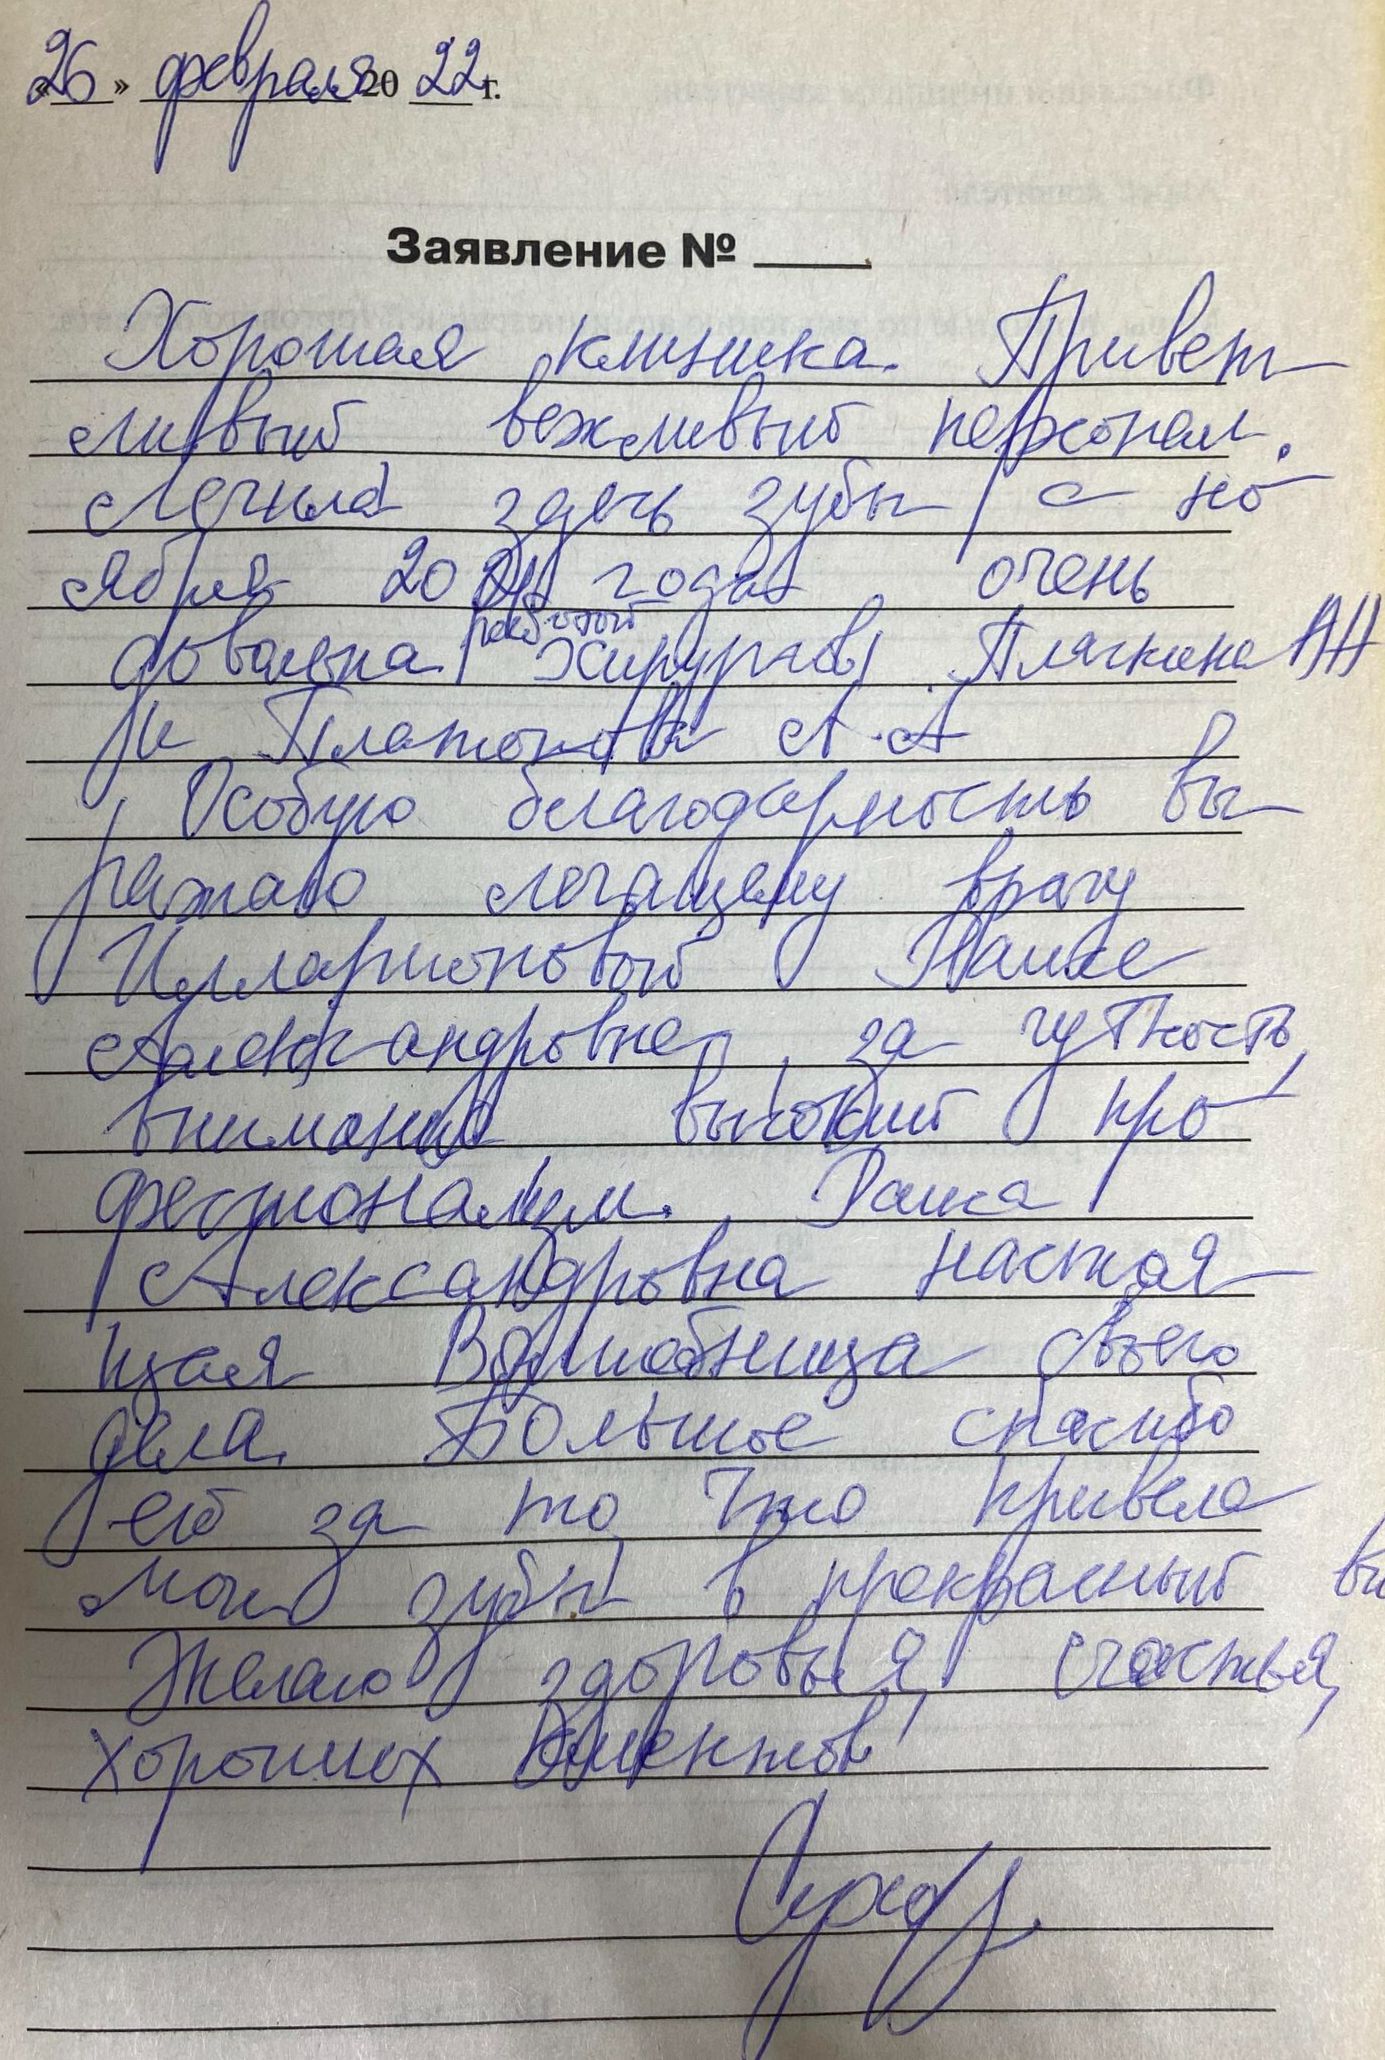 «26» февраля 20 22 г.
Заявление №
Хорошая клиника. Привет-
ливый вежливый персонал.
Лечила здесь зубы с но-
ября 2021 года очень
работой
довольна хирургов Пляскина АН
и Платонова А.А
Особую благодарность вы-
ражаю лечащему врагу
Илларионовой Раисе
Александровне, за чуткость,
внимание высокий про-
фессионализм. Раиса
Александровна настоя-
щая Волшебница своего
дела. Большое спасибо
ей за то что привела
мои зубы в прекрасный ви
Желаю здоровья, счастья,
хороших клиентов!